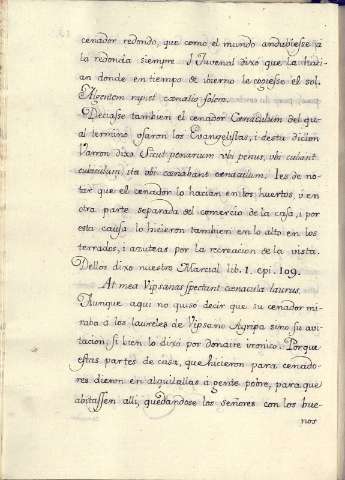 cenador redondo, que como el mundo andubiesse a
la redonda siempre. I Juvenal dixo que la hazi-
an donde en tiempo de ibierno le cogiesse el sol.
Algentem rapiet cœnatio solem.
Deciasse tambien el cenador Cœnaculum del qu-
al termino osaron los Evangelistas, i desta diction
Varron dixo Sicut penarium vbi penus, vbi cubant
cubiculum, ita vbi cœnabant cœnaculum. Ies de no-
tar que el cenador lo hacian en los huertos, v en
otra parte separada del comercio de la casa, i por
esta causa lo hicieron tambien en lo alto en los
terrados, i azuteas por la recreacion de la vista.
Dellos dixo nuestro Marcial lib. 1. epi. 109.
At mea Vipsanas spectent cœnacula laurus.
Aunque aqui no quisó decir que su cenador mi-
raba a los laureles de Vipsano Agripa sino su avi-
tacion, si bien lo dixó por donaire ironico. Porque
estas partes de casa, que hicieron para cenado-
res dieron en alquilallas a gente pobre, para que
abitassen alli, quedandose los señores con los bue-
nos